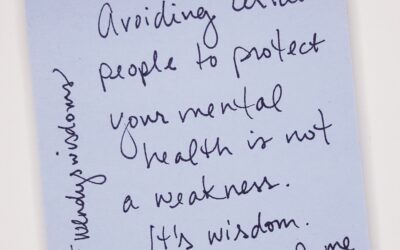 Avoiding
people to protect
your mental
health is not
a weakness.
It's wisdom.
me
wendyswisdoms